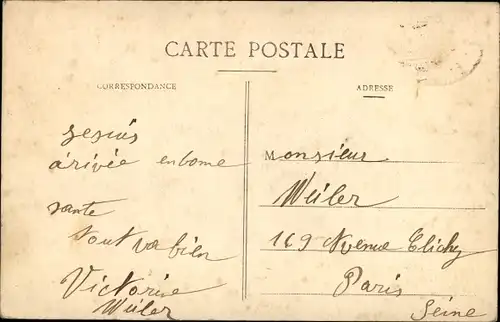 CARTE POSTALE
CORRESPONDANCE
ADRESSE
jesuis
arivée enbone
sante
tout va bien
Victorine
Weiler
Monsieur
Weiler
149 Avenue Clichy
Paris
Seine